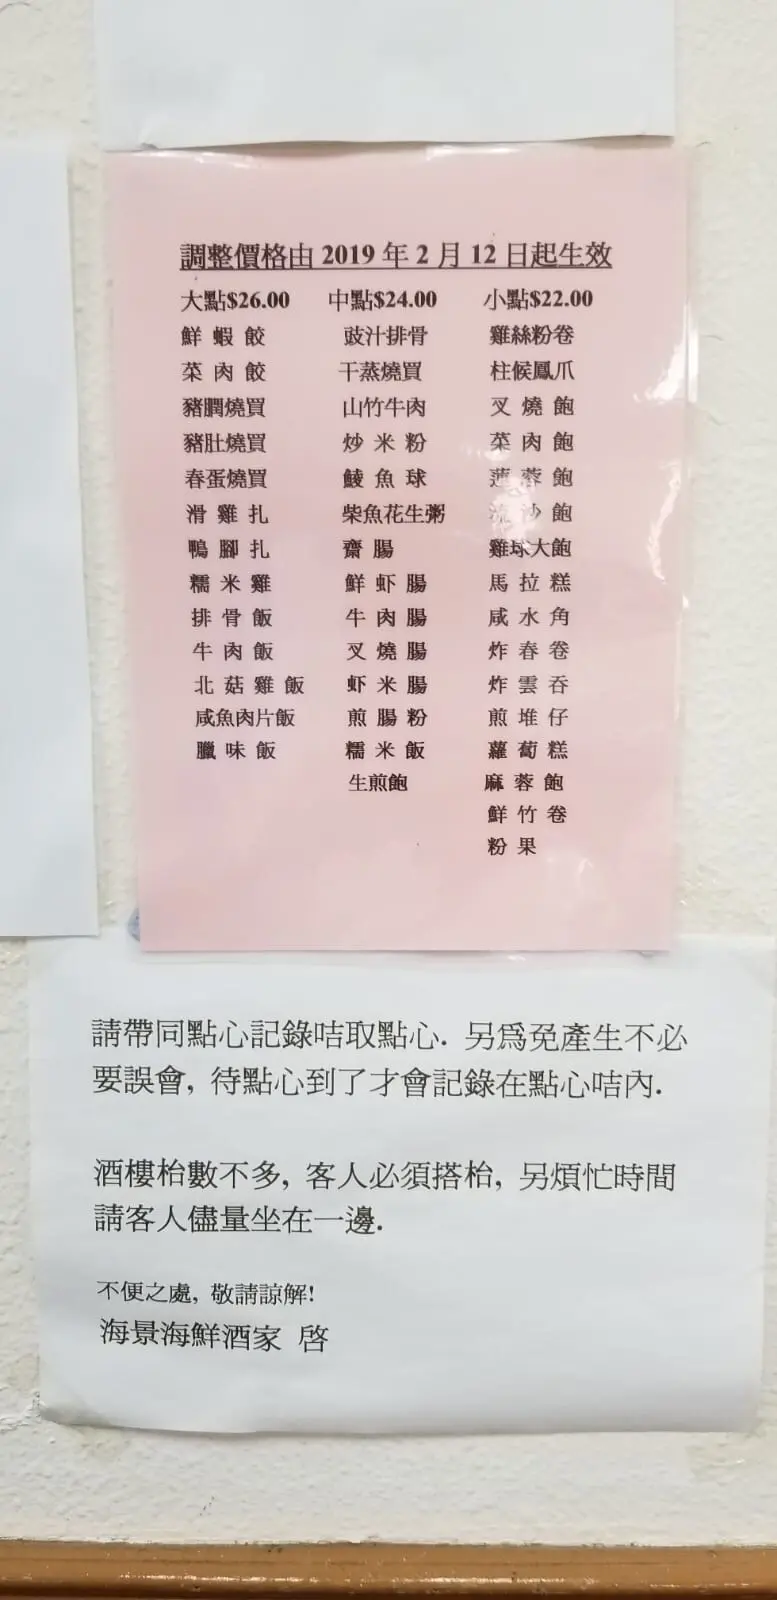 調整價格由 2019 年 2 月 12 日起生效
大點$26.00 中點$24.00 小點$22.00
鮮蝦餃 豉汁排骨 雞絲粉卷
菜肉餃 干蒸燒買 柱候鳳爪
豬膶燒買 山竹牛肉 叉燒飽
豬肚燒買 炒米粉 菜肉飽
春蛋燒買 鯪魚球 蓮蓉飽
滑雞扎 柴魚花生粥 流沙飽
鴨腳扎 齋腸 雞球大飽
糯米雞 鮮虾腸 馬拉糕
排骨飯 牛肉腸 咸水角
牛肉飯 叉燒腸 炸春卷
北菇雞飯 虾米腸 炸雲吞
咸魚肉片飯 煎腸粉 煎堆仔
臘味飯 糯米飯 蘿蔔糕
生煎飽 麻蓉飽
鮮竹卷
粉果
請帶同點心記錄咭取點心. 另爲免產生不必
要誤會, 待點心到了才會記錄在點心咭內.
酒樓枱數不多, 客人必須搭枱, 另煩忙時間
請客人儘量坐在一邊.
不便之處, 敬請諒解!
海景海鮮酒家 啓